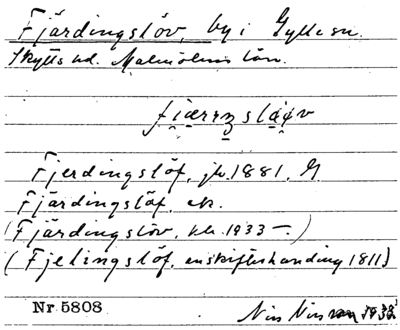 Fjärdingslöv, by i Gylle sn.
Skytts hd. Malmöhus län.
Fjerdingslöf, jb. 1881. G
Fjärdingslöf, ek.
(Fjärdingslöv, kb. 1933 —.)
(Fjelingslöf, enskifteshandling 1811)
Nr. 5808
Nils Nilsson 1932